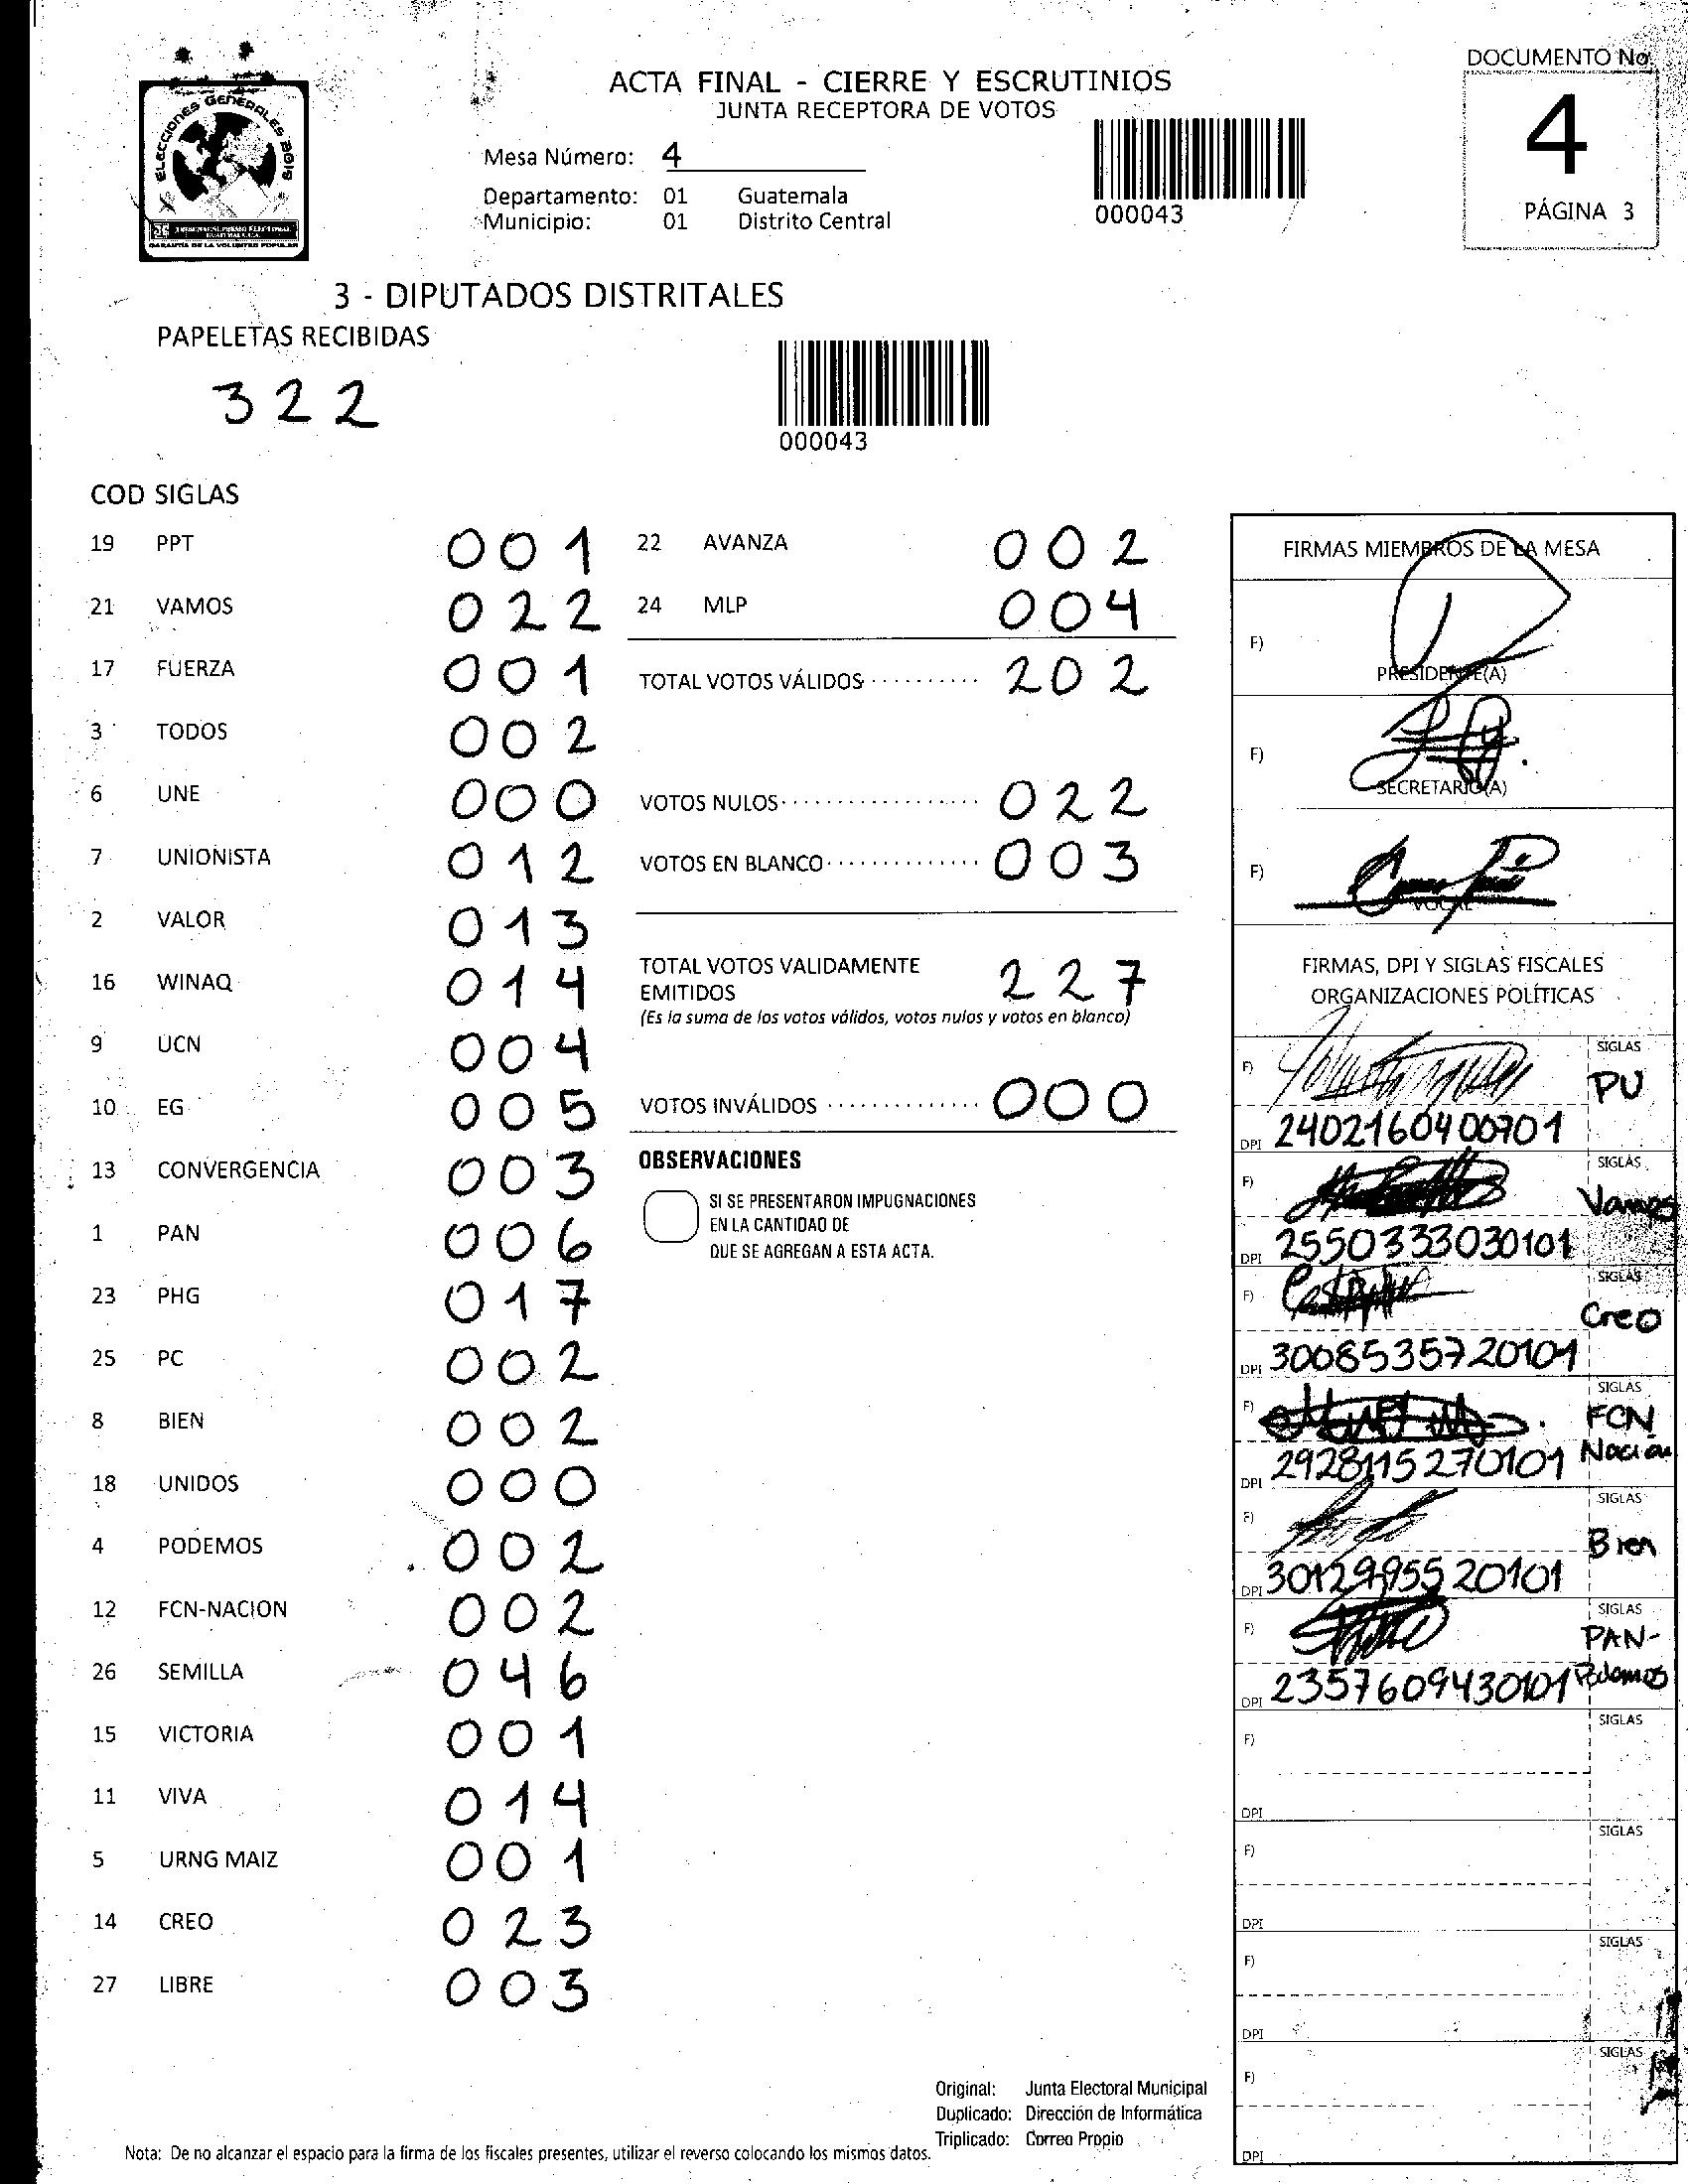 DOCUMENTO No.
4
PÁGINA 3
ELECCIONES GENERALES 2019
TRIBUNAL SUPREMO ELECTORAL
GUATEMALA, C.A.
GARANTÍA DE LA VOLUNTAD POPULAR
ACTA FINAL - CIERRE Y ESCRUTINIOS
JUNTA RECEPTORA DE VOTOS
Mesa Número: 4
Departamento: 01 Guatemala
Municipio: 01 Distrito Central
000043
3 - DIPUTADOS DISTRITALES
PAPELETAS RECIBIDAS
322
000043
COD SIGLAS
19 PPT 001
21 VAMOS 022
17 FUERZA 001
3 TODOS 002
6 UNE 000
7 UNIONISTA 012
2 VALOR 013
16 WINAQ 014
9 UCN 004
10 EG 005
13 CONVERGENCIA 003
1 PAN 006
23 PHG 017
25 PC 002
8 BIEN 002
18 UNIDOS 000
4 PODEMOS 002
12 FCN-NACION 002
26 SEMILLA 046
15 VICTORIA 001
11 VIVA 014
5 URNG MAIZ 001
14 CREO 023
27 LIBRE 003
22 AVANZA 002
24 MLP 004
TOTAL VOTOS VÁLIDOS 202
VOTOS NULOS 022
VOTOS EN BLANCO 003
TOTAL VOTOS VALIDAMENTE
EMITIDOS 227
(Es la suma de los votos válidos, votos nulos y votos en blanco)
VOTOS INVÁLIDOS 000
OBSERVACIONES
SI SE PRESENTARON IMPUGNACIONES
EN LA CANTIDAD DE
QUE SE AGREGAN A ESTA ACTA.
FIRMAS MIEMBROS DE LA MESA
F)
PRESIDENTE(A)
F)
SECRETARIO(A)
F)
VOCAL
FIRMAS, DPI Y SIGLAS FISCALES
ORGANIZACIONES POLÍTICAS
F) SIGLAS
PU
DPI 2402160400701
F) SIGLAS
Vamos
DPI 2550333030101
F) SIGLAS
Creo
DPI 3008535720101
F) SIGLAS
FCN
Nación
DPI 2928115270101
F) SIGLAS
Bien
DPI 3012995520101
F) SIGLAS
PAN-
Podemos
DPI 2357609430101
F) SIGLAS
DPI
F) SIGLAS
DPI
F) SIGLAS
DPI
F) SIGLAS
DPI
Original: Junta Electoral Municipal
Duplicado: Dirección de Informática
Triplicado: Correo Propio
Nota: De no alcanzar el espacio para la firma de los fiscales presentes, utilizar el reverso colocando los mismos datos.